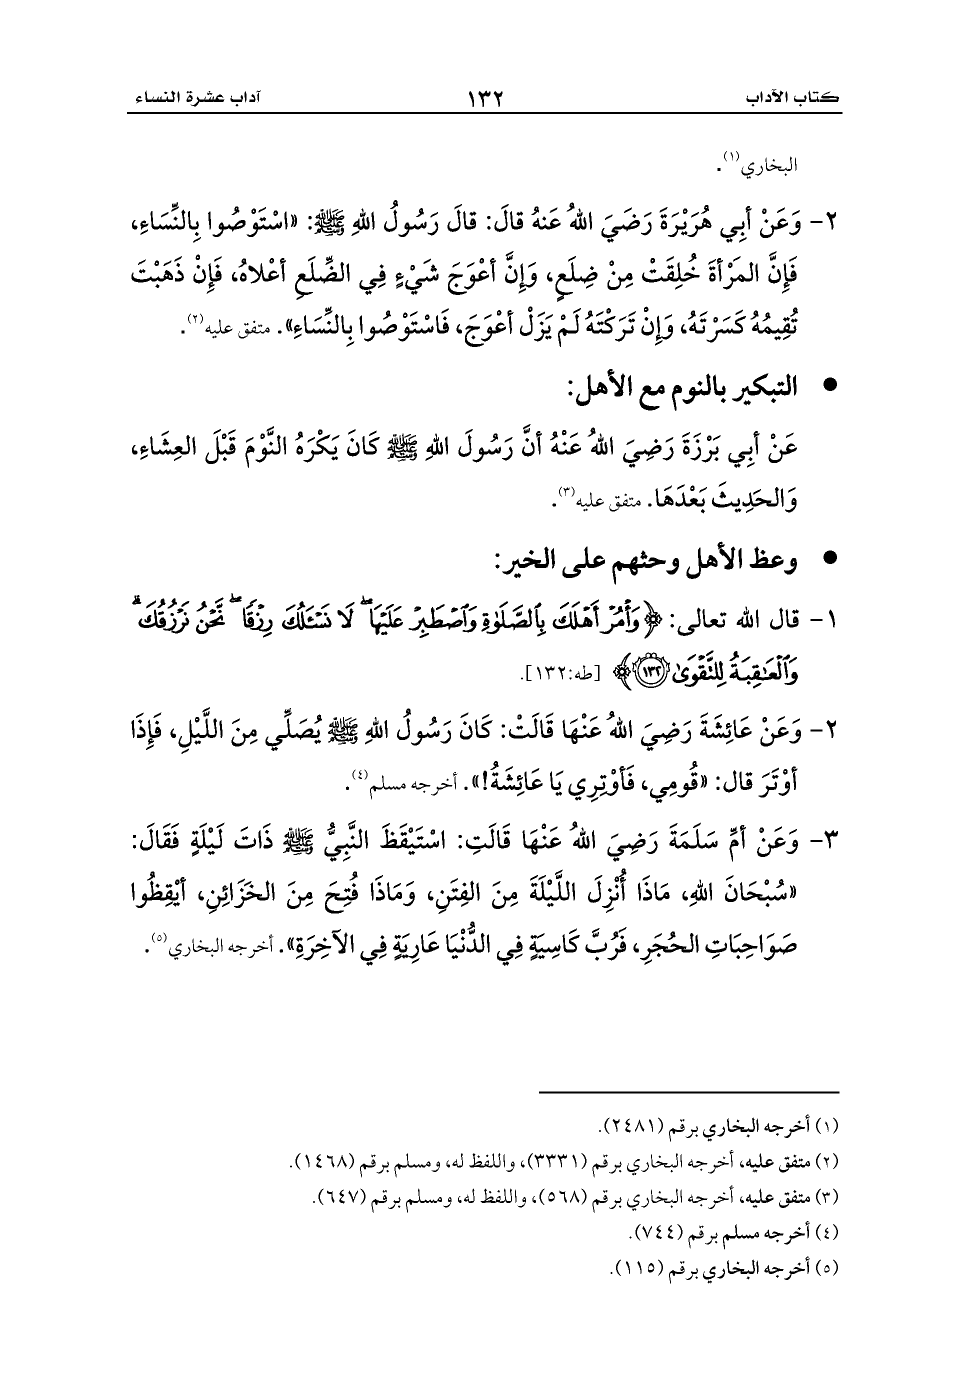 كتاب الآداب ١٣٢ آداب عشرة النساء
البخاري(١).
٢- وَعَنْ أَبِي هُرَيْرَةَ رَضَيَ اللهُ عَنهُ قالَ: قالَ رَسُولُ اللهِ ﷺ: «اسْتَوْصُوا بِالنِّسَاءِ،
فَإِنَّ المَرْأةَ خُلِقَتْ مِنْ ضِلَعٍ، وَإِنَّ أعْوَجَ شَيْءٍ فِي الضِّلَعِ أعْلاهُ، فَإِنْ ذَهَبْتَ
تُقِيمُهُ كَسَرْتَهُ، وَإِنْ تَرَكْتَهُ لَمْ يَزَلْ أعْوَجَ، فَاسْتَوْصُوا بِالنِّسَاءِ». متفق عليه(٢).
● التبكير بالنوم مع الأهل:
عَنْ أبِي بَرْزَةَ رَضِيَ اللهُ عَنْهُ أنَّ رَسُولَ اللهِ ﷺ كَانَ يَكْرَهُ النَّوْمَ قَبْلَ العِشَاءِ،
وَالحَدِيثَ بَعْدَهَا. متفق عليه(٣).
● وعظ الأهل وحثهم على الخير:
١- قال الله تعالى: ﴿وَأۡمُرۡ أَهۡلَكَ بِٱلصَّلَوٰةِ وَٱصۡطَبِرۡ عَلَيۡهَاۖ لَا نَسۡـَٔلُكَ رِزۡقٗاۖ نَّحۡنُ نَرۡزُقُكَۗ
وَٱلۡعَٰقِبَةُ لِلتَّقۡوَىٰ ١٣٢﴾ [طه:١٣٢].
٢- وَعَنْ عَائِشَةَ رَضِيَ اللهُ عَنْهَا قَالَتْ: كَانَ رَسُولُ اللهِ ﷺ يُصَلِّي مِنَ اللَّيْلِ، فَإِذَا
أوْتَرَ قال: «قُومِي، فَأوْتِرِي يَا عَائِشَةُ!». أخرجه مسلم(٤).
٣- وَعَنْ أمِّ سَلَمَةَ رَضِيَ اللهُ عَنْهَا قَالَتِ: اسْتَيْقَظَ النَّبِيُّ ﷺ ذَاتَ لَيْلَةٍ فَقَالَ:
«سُبْحَانَ اللهِ، مَاذَا أُنْزِلَ اللَّيْلَةَ مِنَ الفِتَنِ، وَمَاذَا فُتِحَ مِنَ الخَزَائِنِ، أيْقِظُوا
صَوَاحِبَاتِ الحُجَرِ، فَرُبَّ كَاسِيَةٍ فِي الدُّنْيَا عَارِيَةٍ فِي الآخِرَةِ». أخرجه البخاري(٥).
(١) أخرجه البخاري برقم (٢٤٨١).
(٢) متفق عليه، أخرجه البخاري برقم (٣٣٣١)، واللفظ له، ومسلم برقم (١٤٦٨).
(٣) متفق عليه، أخرجه البخاري برقم (٥٦٨)، واللفظ له، ومسلم برقم (٦٤٧).
(٤) أخرجه مسلم برقم (٧٤٤).
(٥) أخرجه البخاري برقم (١١٥).